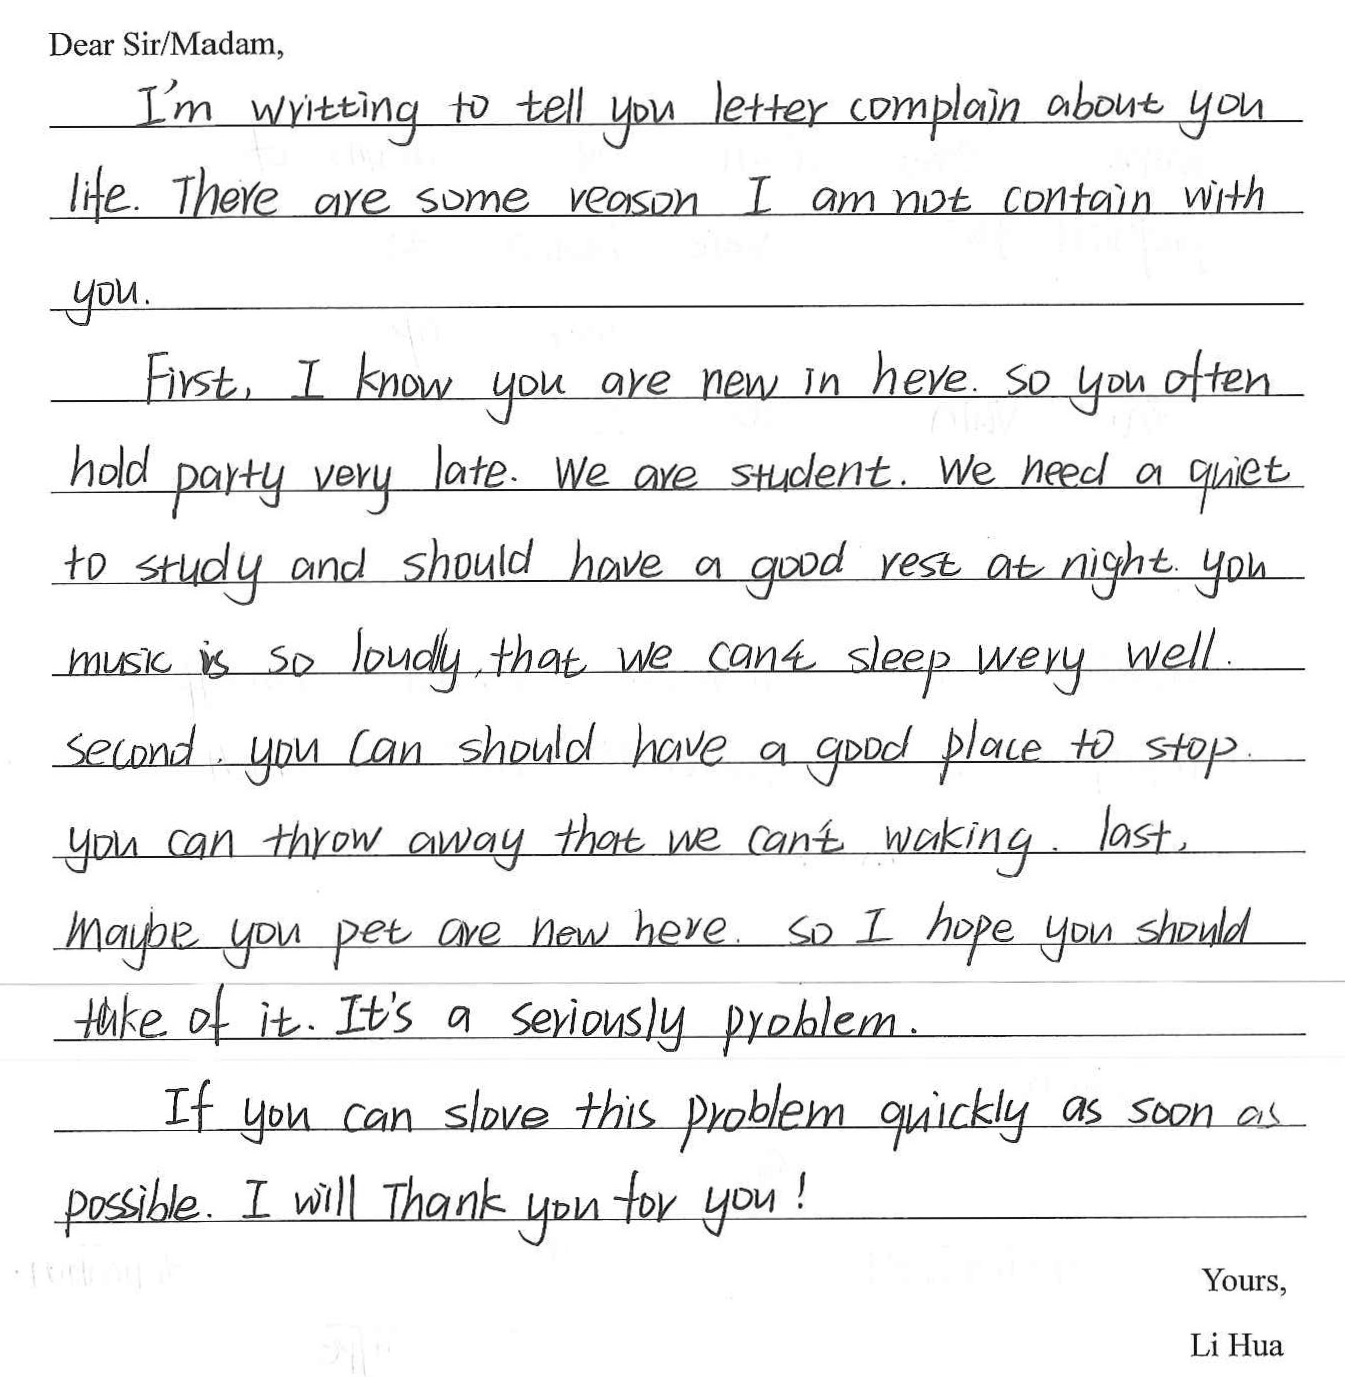 Dear Sir/Madam,
I'm writting to tell you letter complain about you
life. There are some reason I am not contain with
you.
First, I know you are new in here. so you often
hold party very late. We are student. We need a quiet
to study and should have a good rest at night. you
music is so loudly, that we can't sleep wery well.
second, you can should have a good place to stop.
you can throw away that we can't waking. last,
maybe you pet are new here. so I hope you should
take of it. It's a seriously problem.
If you can slove this problem quickly as soon as
possible. I will Thank you for you!
Yours,
Li Hua